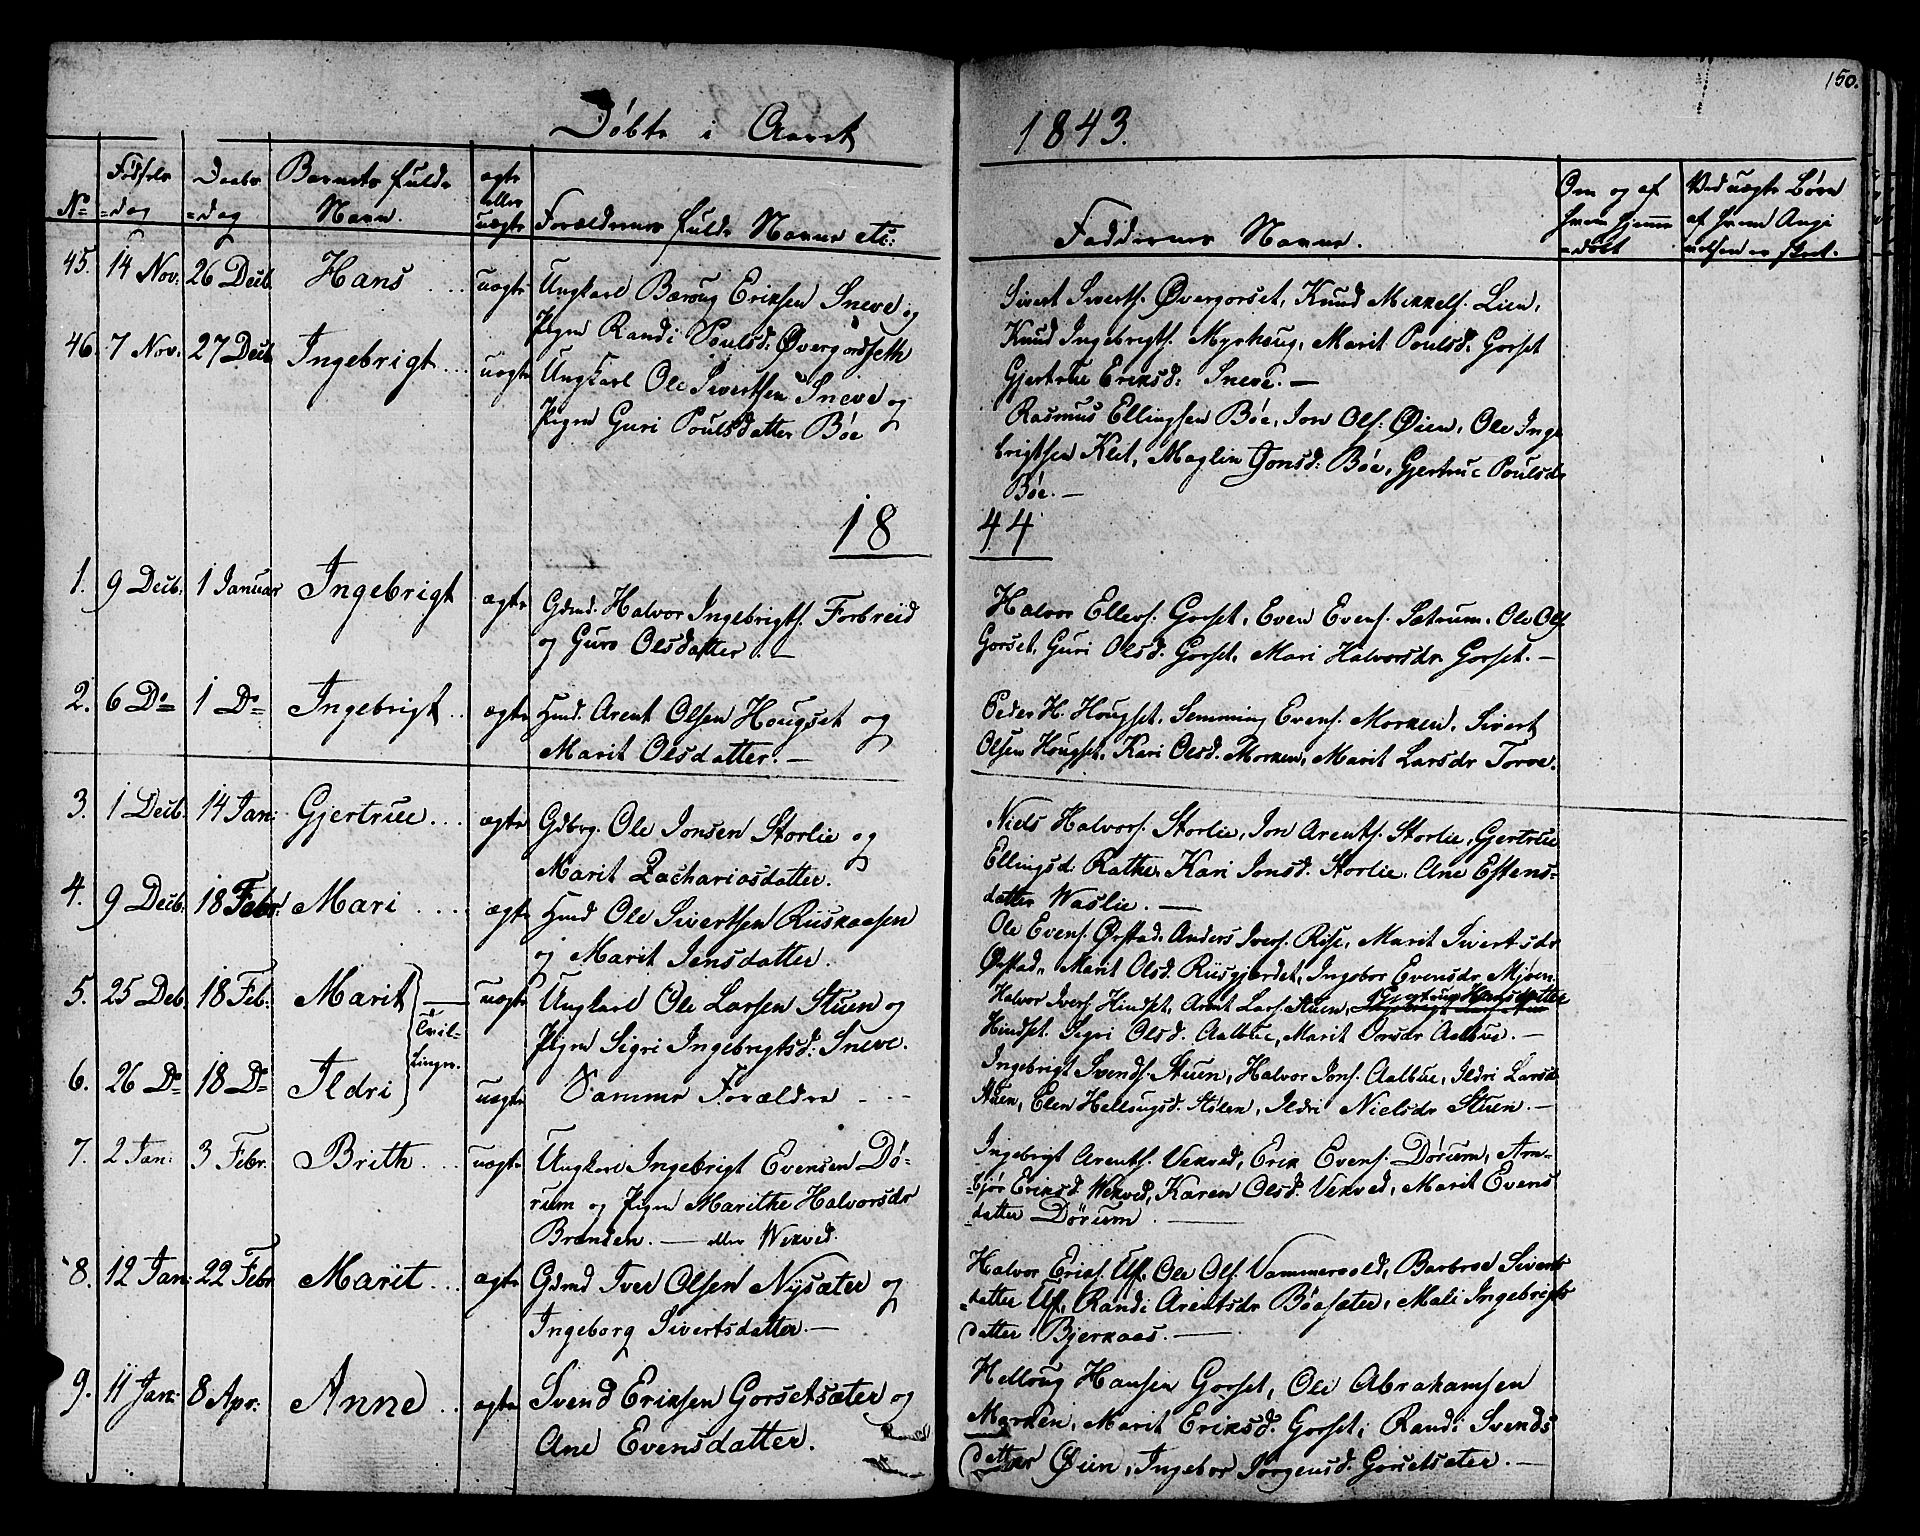 150.
Døbte i Aaret 1843.
No
Fødsels
=dag
Daabs
=dag
Barnets fulde
Navn.
ægte
eller
uægte
Forældrenes fulde Navne etc:
Faddernes Navne.
Om og af
hvem hjemme
=døbt
Ved uægte Børn
af hvem Angi
velsen er skeet.
45. 14 Nov: 26 Decb. Hans .... uægte Ungkarl Bæroug Eriksen Sneve og
Pigen Randi Poulsd: Øvergordseth
Sivert Siverts. Øvergorset, Knud Mikkels. Lien,
Knud Ingebrigts. Myrhaug, Marit Poulsd. Gorset
Gjertrue Eriksd: Sneve. —
46. 7 Nov: 27 Decb Ingebrigt ... uægte Ungkarl Ole Sivertsen Sneve og
Pigen Guri Poulsdatter Bøe
Rasmus Ellingsen Bøe, Jon Ols: Øien, Ole Inge
brigtsen Klet, Maglin Jonsd: Bøe, Gjertrue Poulsdr
Bøe. —
18 44
1. 9 Decb. 1 Januar Ingebrigt ægte Gdmd. Halvor Ingebrigts. Forbreid
og Guro Olsdatter. —
Halvor Ellevs. Gorset, Even Evens. Sætrum, Ole Ols.
Gorset, Guri Olsd. Gorset, Mari Halvorsdr Gorset. —
2. 6 Do 1 Do Ingebrigt .. ægte Hmd. Arent Olsen Hougset og
Marit Olsdatter. —
Peder H. Hougset, Semming Evens. Morken, Sivert
Olsen Hougset, Kari Olsd. Morken, Marit Larsdr Torve.
3. 1 Decb. 14 Jan: Gjertrue ... ægte Gdbrg. Ole Jonsen Storlie og
Marit Zachariasdatter.
Niels Halvors. Storlie, Jon Arents. Storlie, Gjertrue
Ellingsd. Rathe, Kari Jonsd. Storlie, Ane Estens-
datter Waslie. —
4. 9 Decb. 18 Febr: Mari .... ægte Hmd Ole Sivertsen Ruskaasen
og Marit Jensdatter.
Ole Evens. Ørstad, Anders Ivers. Rise, Marit Sivertsdr
Ørstad, Marit Olsd. Riisgjerdet, Ingebor Evensdr Mjøen
5. 25 Deb. 18 Feb: Marit — uægte Ungkarl Ole Larsen Stuen og
Pigen Sigri Ingebrigtsd: Sneve.
Tvil-
linger.
Halvor Ivers. Hindset, Arent Lars. Stuen, Gjertrue Hansdatter
Hindset. Sigri Olsd. Aalbue, Marit Onsdr Aalbue. —
6. 26 Do 18 Do Ildri uægte Samme Forældre ---
Ingebrigt Svends. Stuen, Halvor Jons. Aalbue, Ildri Larsd.
Stuen, Elen Hellougsd. Stølen, Ildri Nielsdr Stuen. —
7. 2 Jan: 3 Febr. Brith ... uægte Ungkarl Ingebrigt Evensen Dø-
rum og Pigen Marithe Halvorsdr
Brænden. — eller Wekved.
Ingebrigt Arents. Vekved, Erik Evens. Dørum, Arn-
=bjør Eriksd. Wekved, Karen Olsd. Vekved, Marit Evens
=datter Dørum. —
8. 12 Jan: 22 Febr Marit ... ægte Gdmd Iver Olsen Nysæter og
Ingeborg Sivertsdatter. —
Halvor Eriks. Uf, Ole Ols. Vammervold, Barbroe Siverts
=datter Uf, Randi Arentsdr Bøasæter, Mali Ingebrigts
datter Bjerkaas. —
9. 11 Jan: 8 Apr: Anne .. ægte Svend Eriksen Gorsetsæter og
Ane Evensdatter.
Helloug Hansen Gorset, Ole Abrahamsen
Morken, Marit Eriksd. Gorset, Randi Svends
datter Øien, Ingebor Jorgensd. Gorsetsæter. —